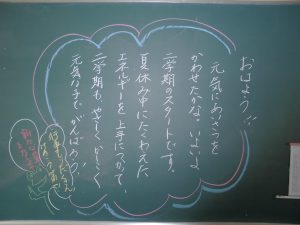 おはよう!!
元気にあいさつを
かわせたかな。いよいよ
二学期のスタートです。
夏休み中にたくわえた
エネルギーを上手につかって、
二学期も、やさしく・かしこく
元気な子で がんばろう!